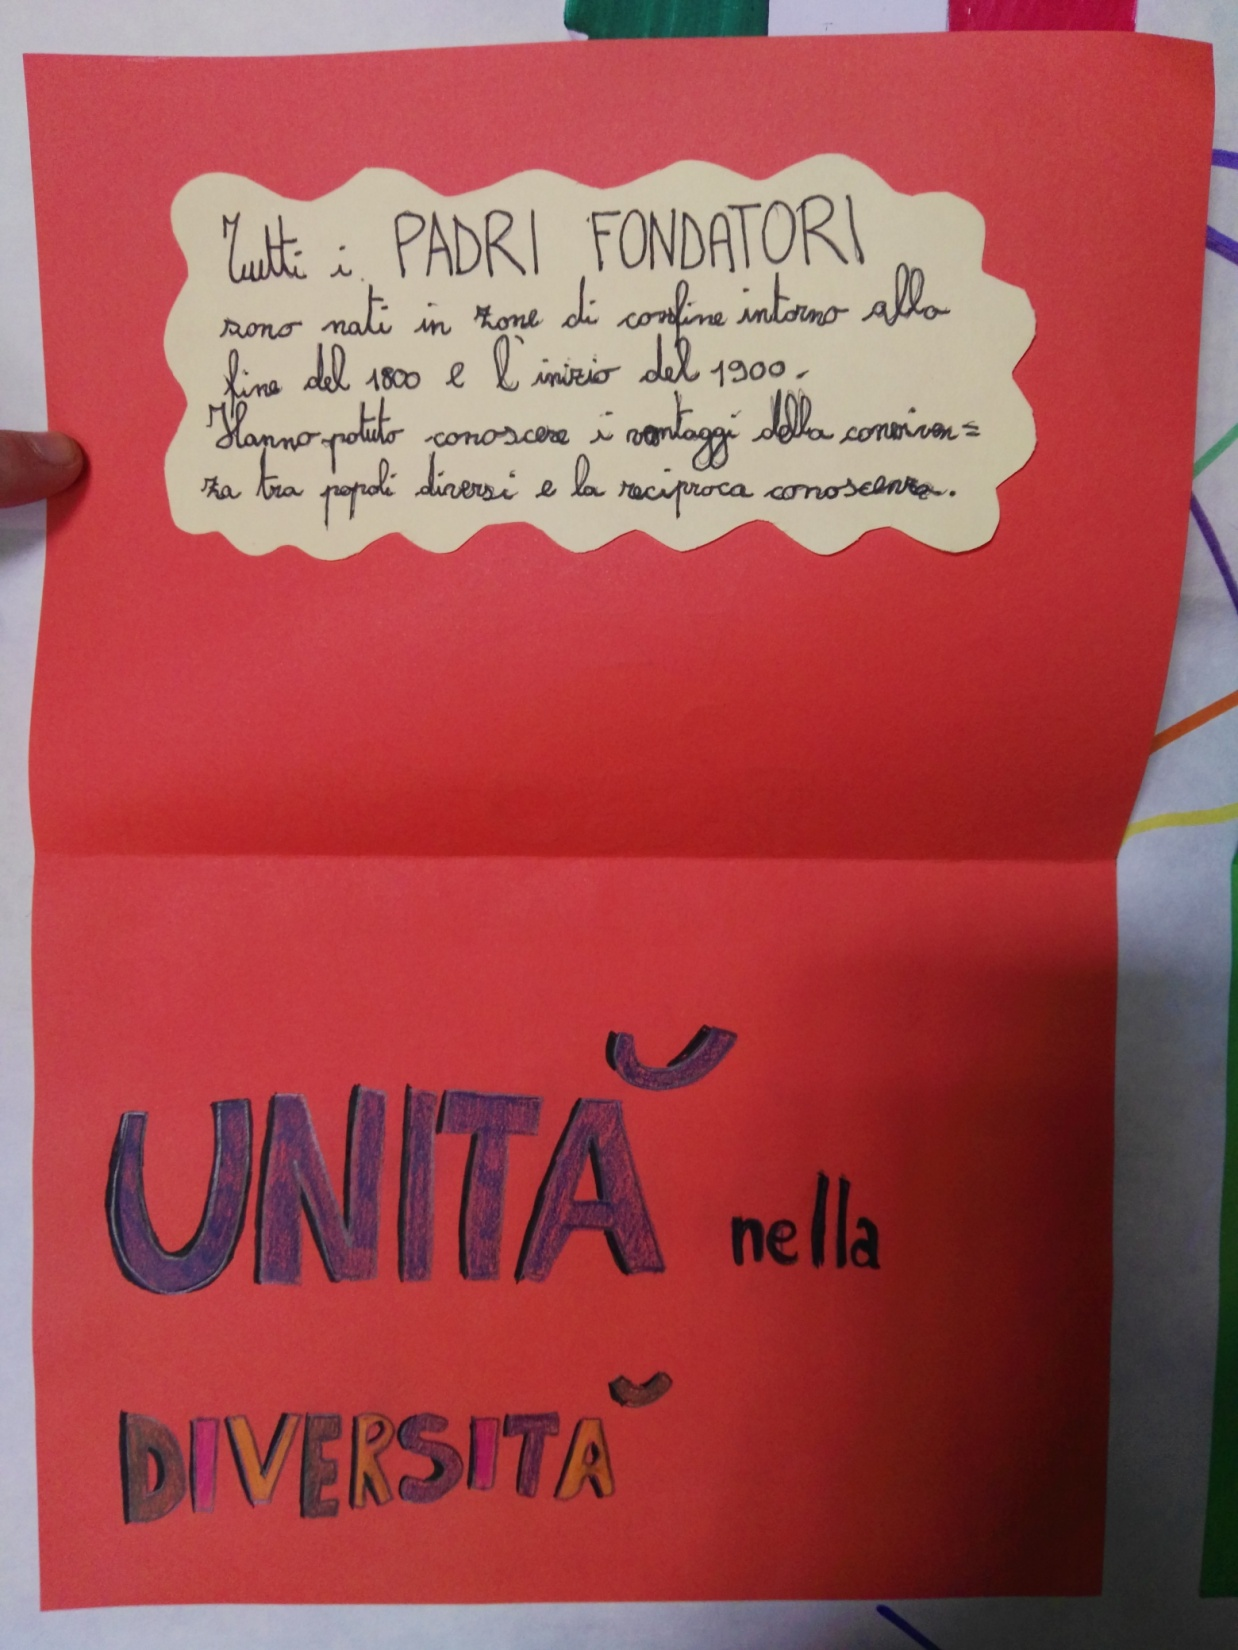 Tutti i PADRI FONDATORI
sono nati in zone di confine intorno alla
fine del 1800 e l'inizio del 1900.
Hanno potuto conoscere i vantaggi della conviven=
za tra popoli diversi e la reciproca conoscenza.
UNITĂ nella
DIVERSITĂ